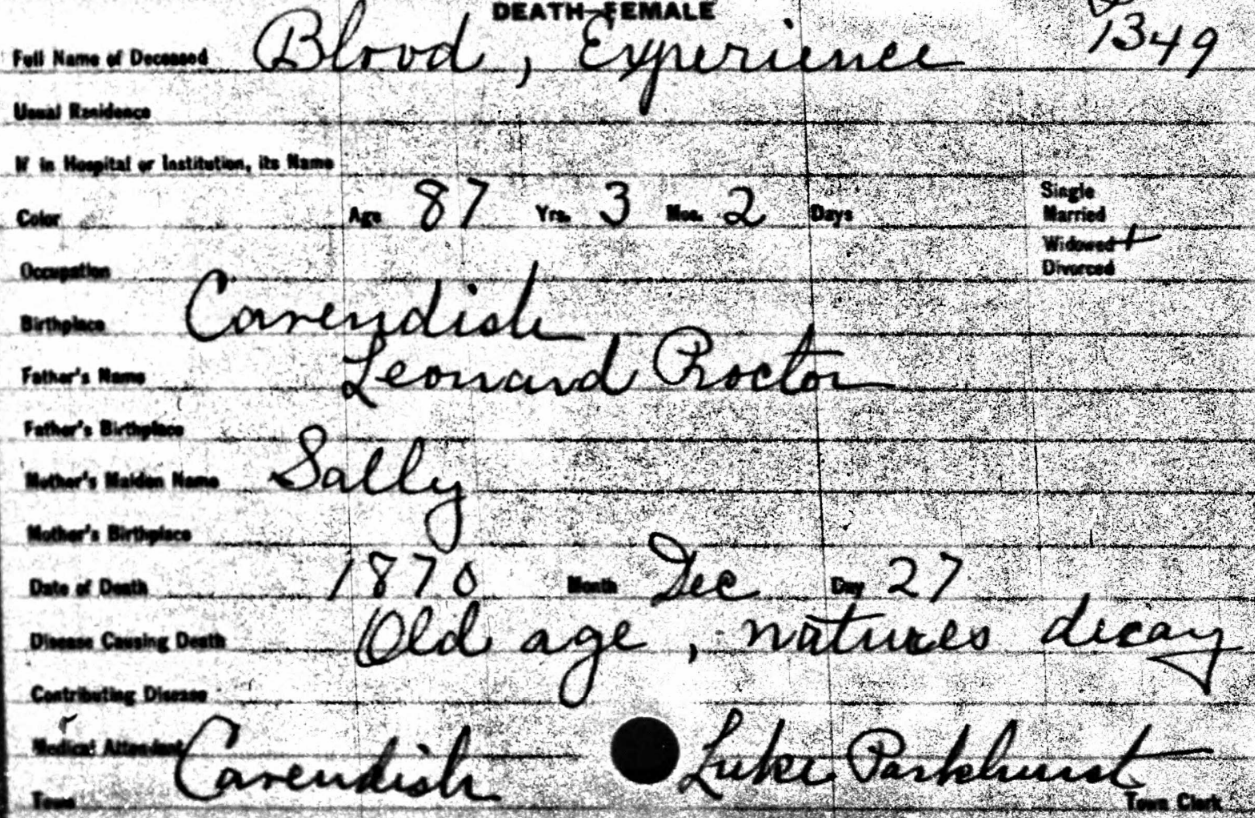 DEATH—FEMALE
1349
Full Name of Deceased Blood, Experience
Usual Residence
If in Hospital or Institution, its Name
Color Age 87 Yrs. 3 Mos. 2 Days Single
Married
Widowed
Divorced
Occupation
Birthplace Cavendish
Father's Name Leonard Proctor
Father's Birthplace
Mother's Maiden Name Sally
Mother's Birthplace
Date of Death 1870 Month Dec Day 27
Disease Causing Death Old age, natures decay
Contributing Disease
Medical Attendant
Town Cavendish Luke Parkhurst Town Clerk